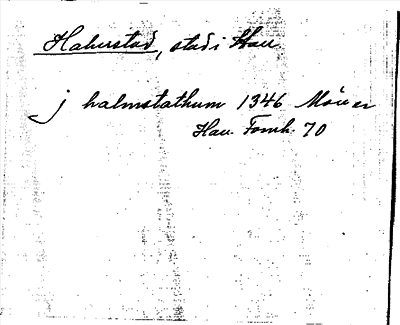 Halmstad, stad i Hall
j halmstathum 1346 Möller
Hall. Fornh. 70